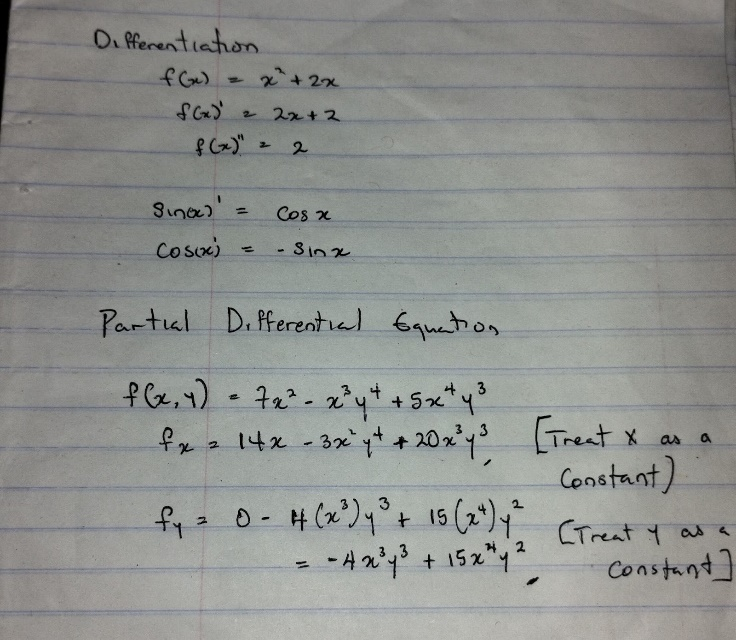 Differentiation
f(x) = x² + 2x
f(x)' = 2x + 2
f(x)" = 2
Sin(x)' = Cos x
Cos(x)' = - Sin x
Partial Differential Equation
f(x, y) = 7x² - x³y⁴ + 5x⁴y³
fx = 14x - 3x²y⁴ + 20x³y³, [Treat x as a
Constant)
fy = 0 - 4(x³)y³ + 15(x⁴)y² [Treat y as a
= -4x³y³ + 15x⁴y². Constant]